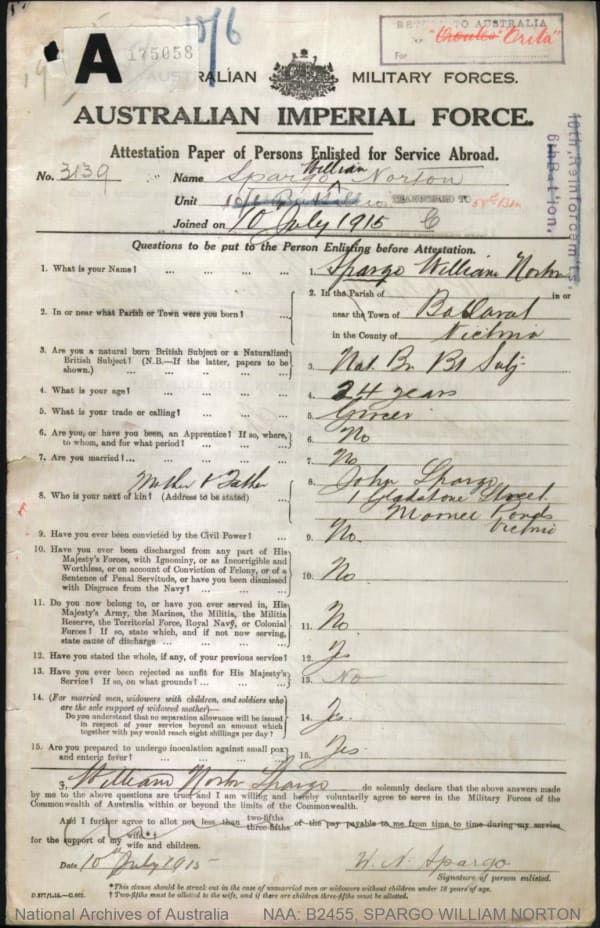 A
175058
RETURN TO AUSTRALIA
"Orita"
For
AUSTRALIAN MILITARY FORCES.
AUSTRALIAN IMPERIAL FORCE.
10th Reinforcem'ts,
6th Bat'ion.
Attestation Paper of Persons Enlisted for Service Abroad.
No. 3139 Name Spargo William Norton
Unit TRANSFERRED TO 58th Btn
Joined on 10 July 1915 C
Questions to be put to the Person Enlisting before Attestation.
1. What is your Name? ... ... ... ... 1. Spargo William Norton
2. In or near what Parish or Town were you born? ... 2. In the Parish of in or
near the Town of Ballarat
in the County of Victoria
3. Are you a natural born British Subject or a Naturalized
British Subject? (N.B.—If the latter, papers to be
shown.) ... ... ... 3. Nat. Br Bt Subj
4. What is your age? ... ... ... ... 4. 24 years
5. What is your trade or calling? ... ... ... 5. Grocer
6. Are you, or have you been, an Apprentice? If so, where,
to whom, and for what period? ... ... ... 6. No
7. Are you married?... ... ... ... ... 7. No
Mother & Father
8. Who is your next of kin? (Address to be stated) ... 8. John Spargo
1 Gladstone Street
Moonee Ponds
Victoria
9. Have you ever been convicted by the Civil Power? ... 9. No.
10. Have you ever been discharged from any part of His
Majesty's Forces, with Ignominy, or as Incorrigible and
Worthless, or on account of Conviction of Felony, or of a
Sentence of Penal Servitude, or have you been dismissed
with Disgrace from the Navy? ... ... ... 10. No.
11. Do you now belong to, or have you ever served in, His
Majesty's Army, the Marines, the Militia, the Militia
Reserve, the Territorial Force, Royal Navy, or Colonial
Forces? If so, state which, and if not now serving,
state cause of discharge ... ... ... 11. No.
12. Have you stated the whole, if any, of your previous service? 12. Yes
13. Have you ever been rejected as unfit for His Majesty's
Service? If so, on what grounds? ... ... ... 13. No
14. (For married men, widowers with children, and soldiers who
are the sole support of widowed mother)—
Do you understand that no separation allowance will be issued
in respect of your service beyond an amount which
together with pay would reach eight shillings per day? 14. Yes.
15. Are you prepared to undergo inoculation against small pox
and enteric fever? ... ... ... ... 15. Yes
I, William Norton Spargo do solemnly declare that the above answers made
by me to the above questions are true, and I am willing and hereby voluntarily agree to serve in the Military Forces of the
Commonwealth of Australia within or beyond the limits of the Commonwealth.
And I further agree to allot not less than two-fifths three-fifths of the pay payable to me from time to time during my service
for the support of my wife* wife and children.
Date 10th July 1915 W. N. Spargo
Signature of person enlisted.
*This clause should be struck out in the case of unmarried men or widowers without children under 18 years of age.
† Two-fifths must be allotted to the wife, and if there are children three-fifths must be allotted.
National Archives of Australia NAA: B2455, SPARGO WILLIAM NORTON